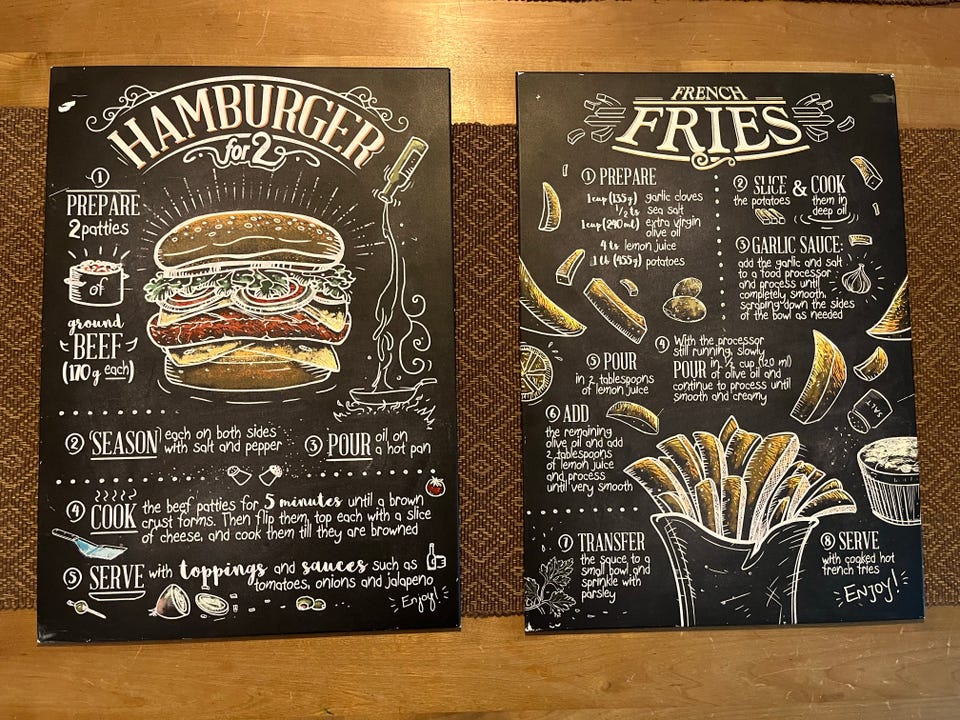 HAMBURGER
for 2
1
PREPARE
2 patties
of
ground
BEEF
(170 g each)
2 SEASON each on both sides
with salt and pepper
3 POUR oil on
a hot pan
4 COOK the beef patties for 5 minutes until a brown
crust forms. Then flip them, top each with a slice
of cheese, and cook them till they are browned
5 SERVE with toppings and sauces such as
tomatoes, onions and jalapeno
Enjoy!
FRENCH
FRIES
1 PREPARE
1 cup (135g) garlic cloves
1/2 ts sea salt
1 cup (240 ml) extra virgin
olive oil
4 ts lemon juice
1 lb (455g) potatoes
2 SLICE & COOK
the potatoes them in
deep oil
3 GARLIC SAUCE:
add the garlic and salt
to a food processor
and process until
completely smooth,
scraping down the sides
of the bowl as needed
4 With the processor
still running, slowly
POUR in 1/2 cup (120 ml)
of olive oil and
continue to process until
smooth and creamy
5 POUR
in 2 tablespoons
of lemon juice
6 ADD
the remaining
olive oil and add
2 tablespoons
of lemon juice
and process
until very smooth
SALT
7 TRANSFER
the sauce to a
small bowl and
sprinkle with
parsley
8 SERVE
with cooked hot
french fries
Enjoy!